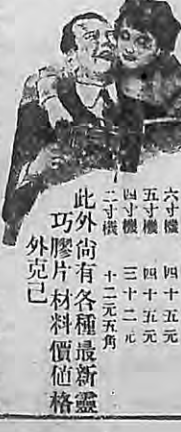 六寸機 四十五元
五寸機 四十五元
四寸機 三十二元
二寸機 十二元五角
此外尚有各種最新靈
巧膠片材料價値格
外克己